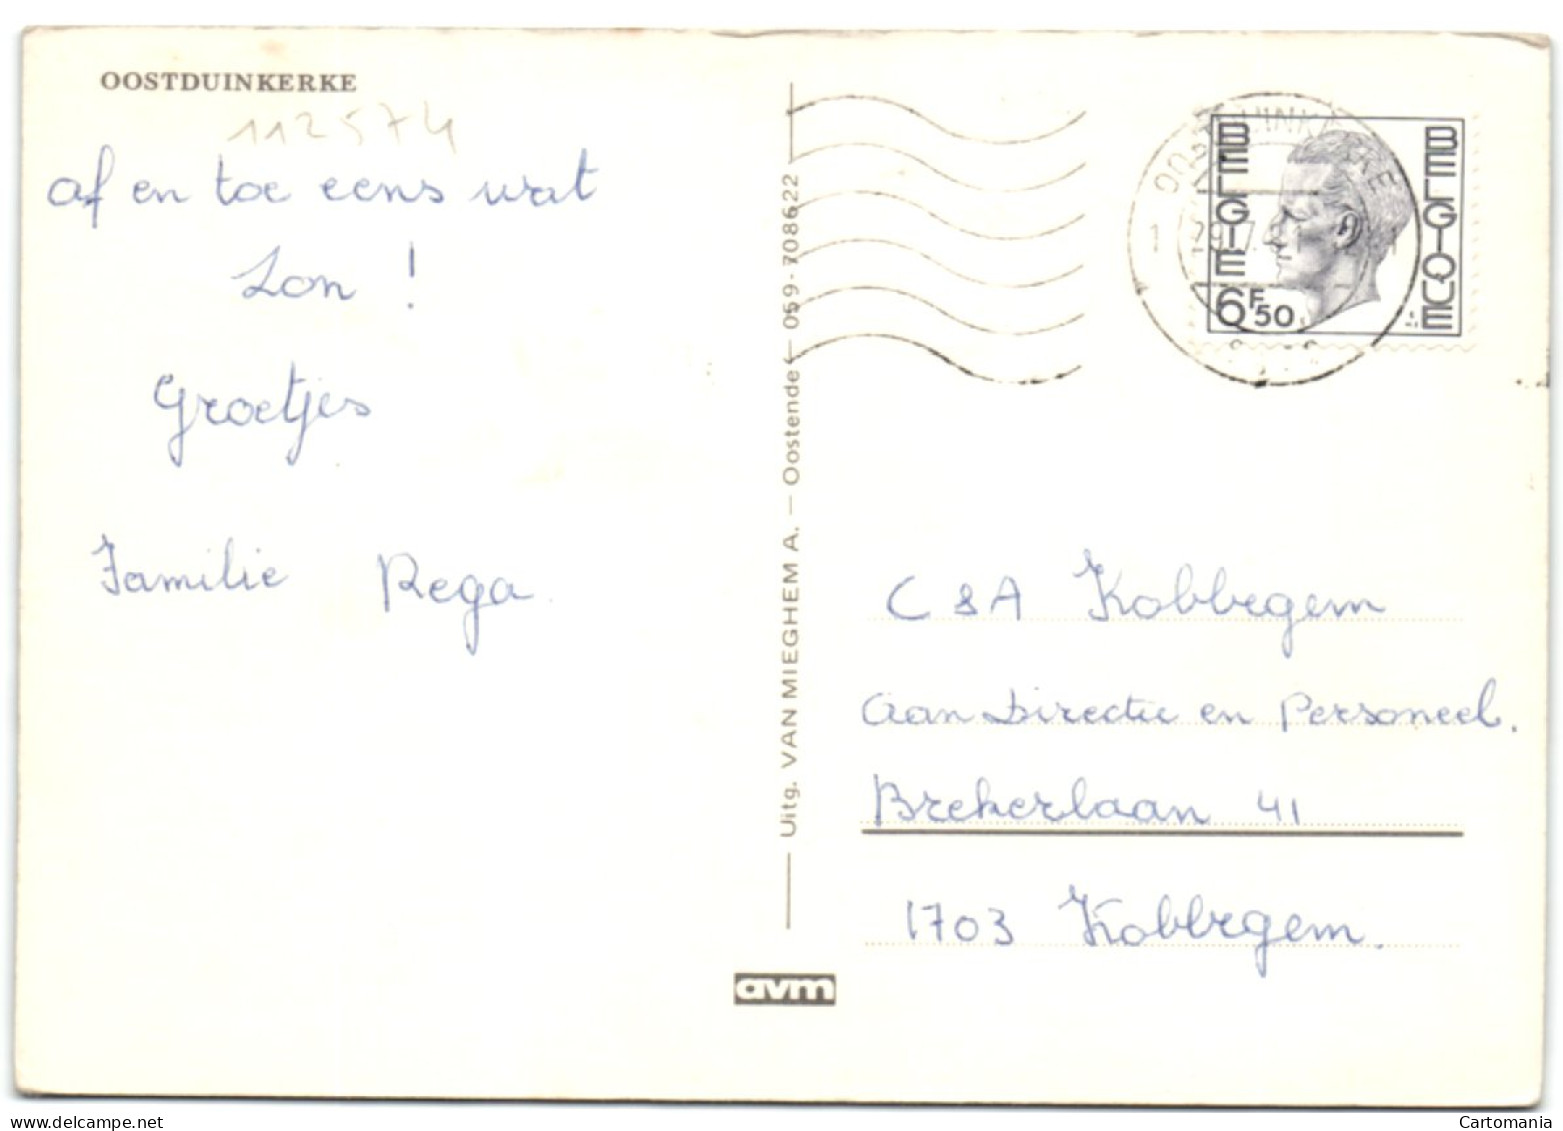 OOSTDUINKERKE
112574
af en toe eens wat
Zon !
Groetjes
Familie Rega
Uitg. VAN MIEGHEM A. — Oostende — 059-708622
avm
BELGIE
BELGIQUE
6F50
C & A Kobbegem
Aan Directie en Personeel.
Brekerlaan 41
1703 Kobbegem.
delcampe.net
Cartomania